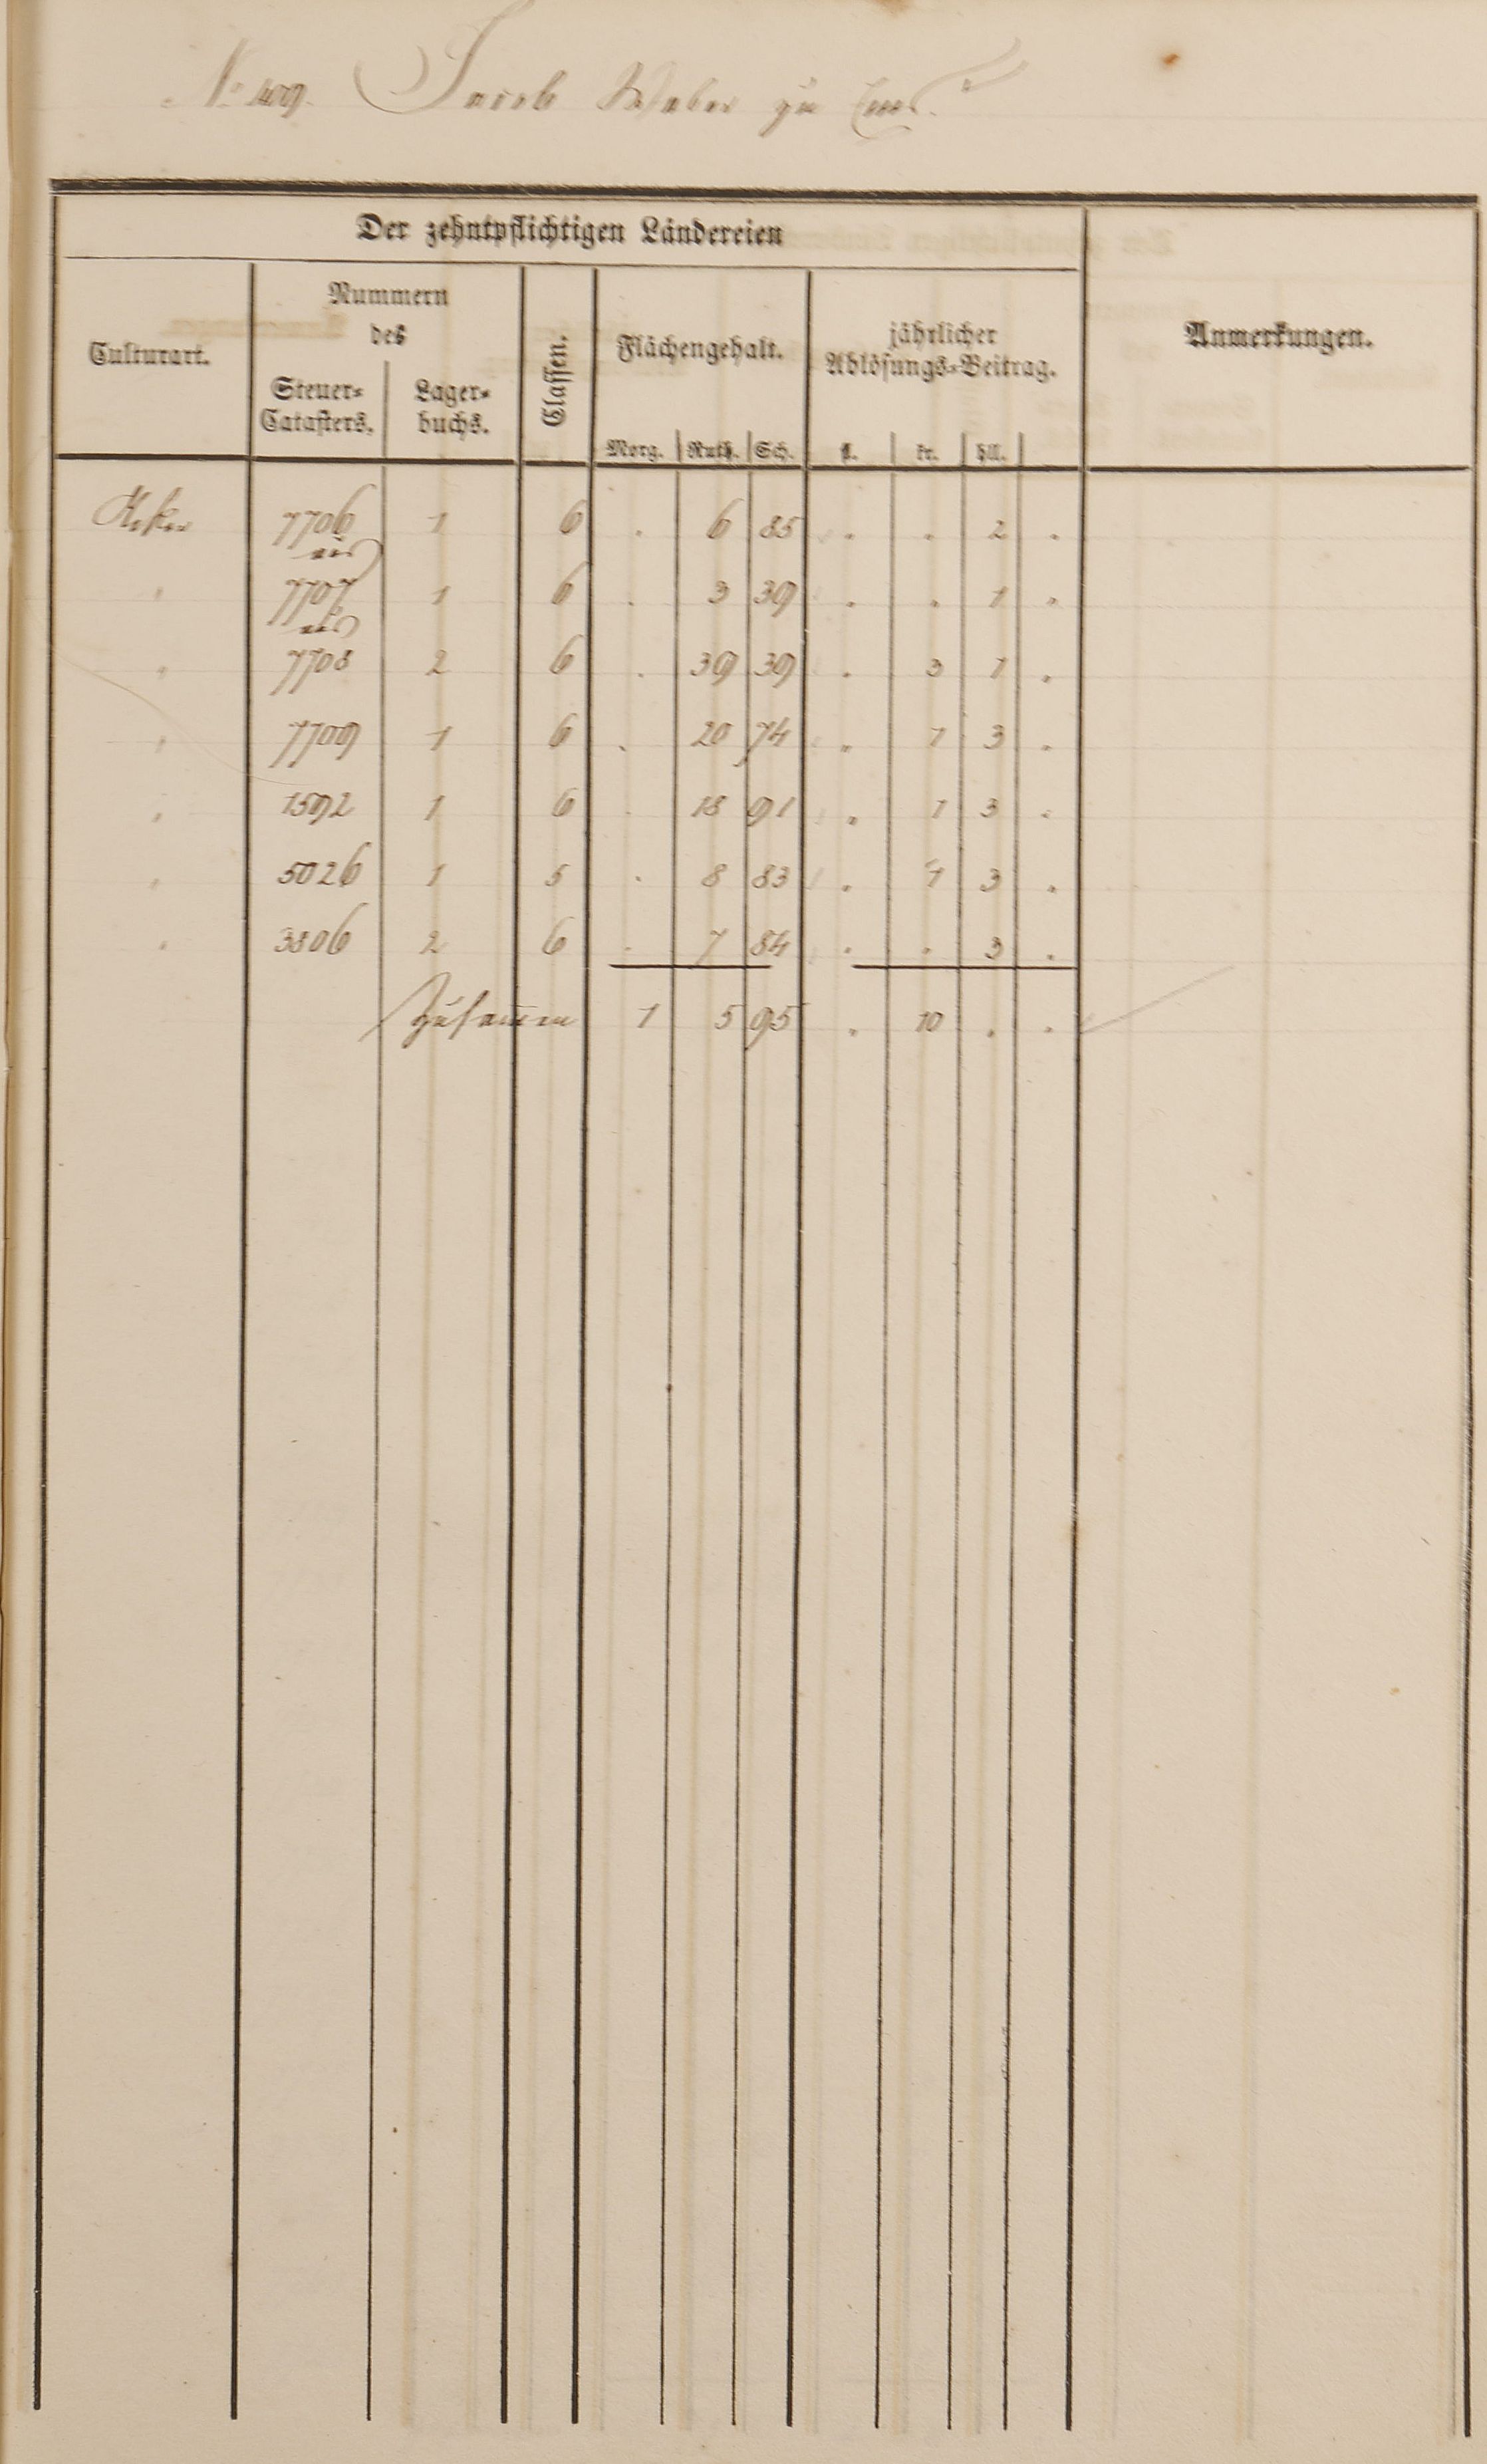 No 409. Jacob Weber zu Ems.
Der zehntpflichtigen Ländereien
Culturart.
Nummern
des
Steuer-
Catasters.
Lager-
buchs.
Classen.
Flächengehalt.
Morg. Ruth. Sch.
jährlicher
Ablösungs-Beitrag.
fl. kr. hll.
Anmerkungen.
Acker 7706 1 6 . 6 85 . . 2 .
aus
" 7707 1 6 . 3 39 . . 1 .
aus
" 7708 2 6 . 39 39 . 3 1 .
" 7709 1 6 . 20 74 . 1 3 .
" 1592 1 6 . 18 91 . 1 3 .
" 5026 1 5 . 8 83 . 1 3 .
" 3806 2 6 . 7 84 . . 3 .
Zusammen 1 5 95 . 10 . .